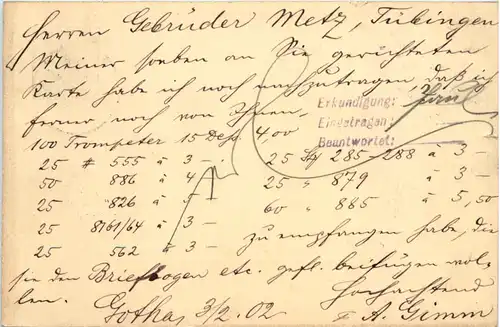 Herren Gebrüder Metz, Tübingen
Meiner soeben an Sie gerichteten
Karte habe ich noch nachzutragen, daß ich
ferner noch von Ihnen
Erkundigung:
Eingetragen:
Beantwortet:
100 Trompeter 15 Dess. 4,00
25 # 555 à 3 –   25 285-288 à 3 –
50 886 à 4 –   25 " 879 à 3 –
25 826 à 5 –   60 " 885 à 5,50
25 8161/64 à 3 –
25 562 à 3 –   zu empfangen habe, die
sie den Briefbogen etc. gefl. beifügen wol-
len. Hochachtend
Gotha, 3/2. 02 A. Gimm